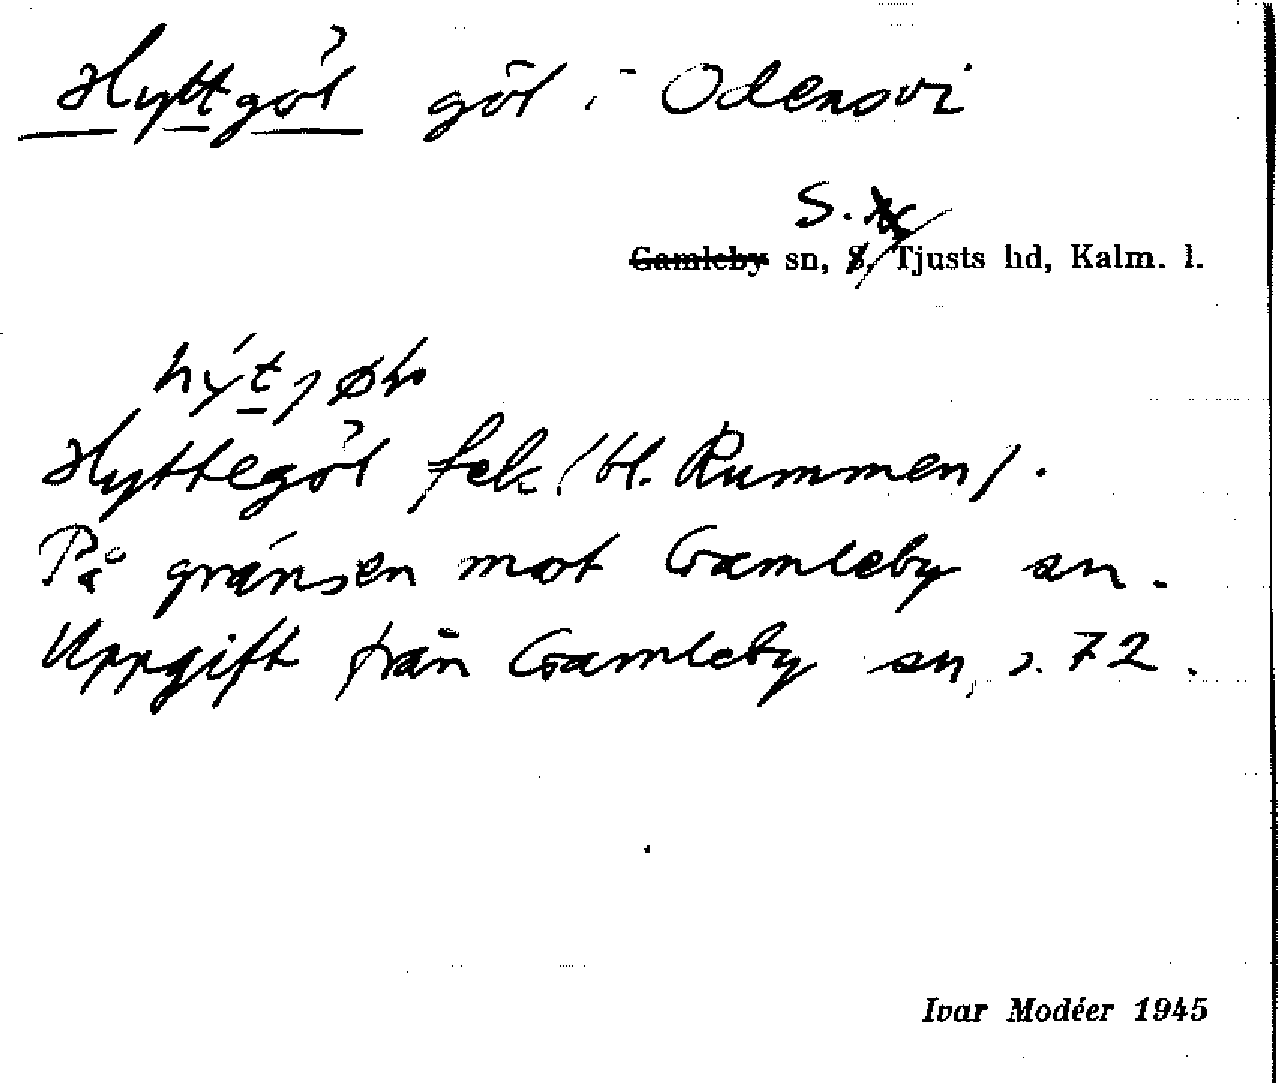 Hyttgöl göl i Odensvi
S.
Gamleby sn, S. Tjusts hd, Kalm. l.
Hyttegöl fek (bl. Rummen).
På gränsen mot Gamleby sn.
Uppgift från Gamleby sn, s. 72.
Ivar Modéer 1945